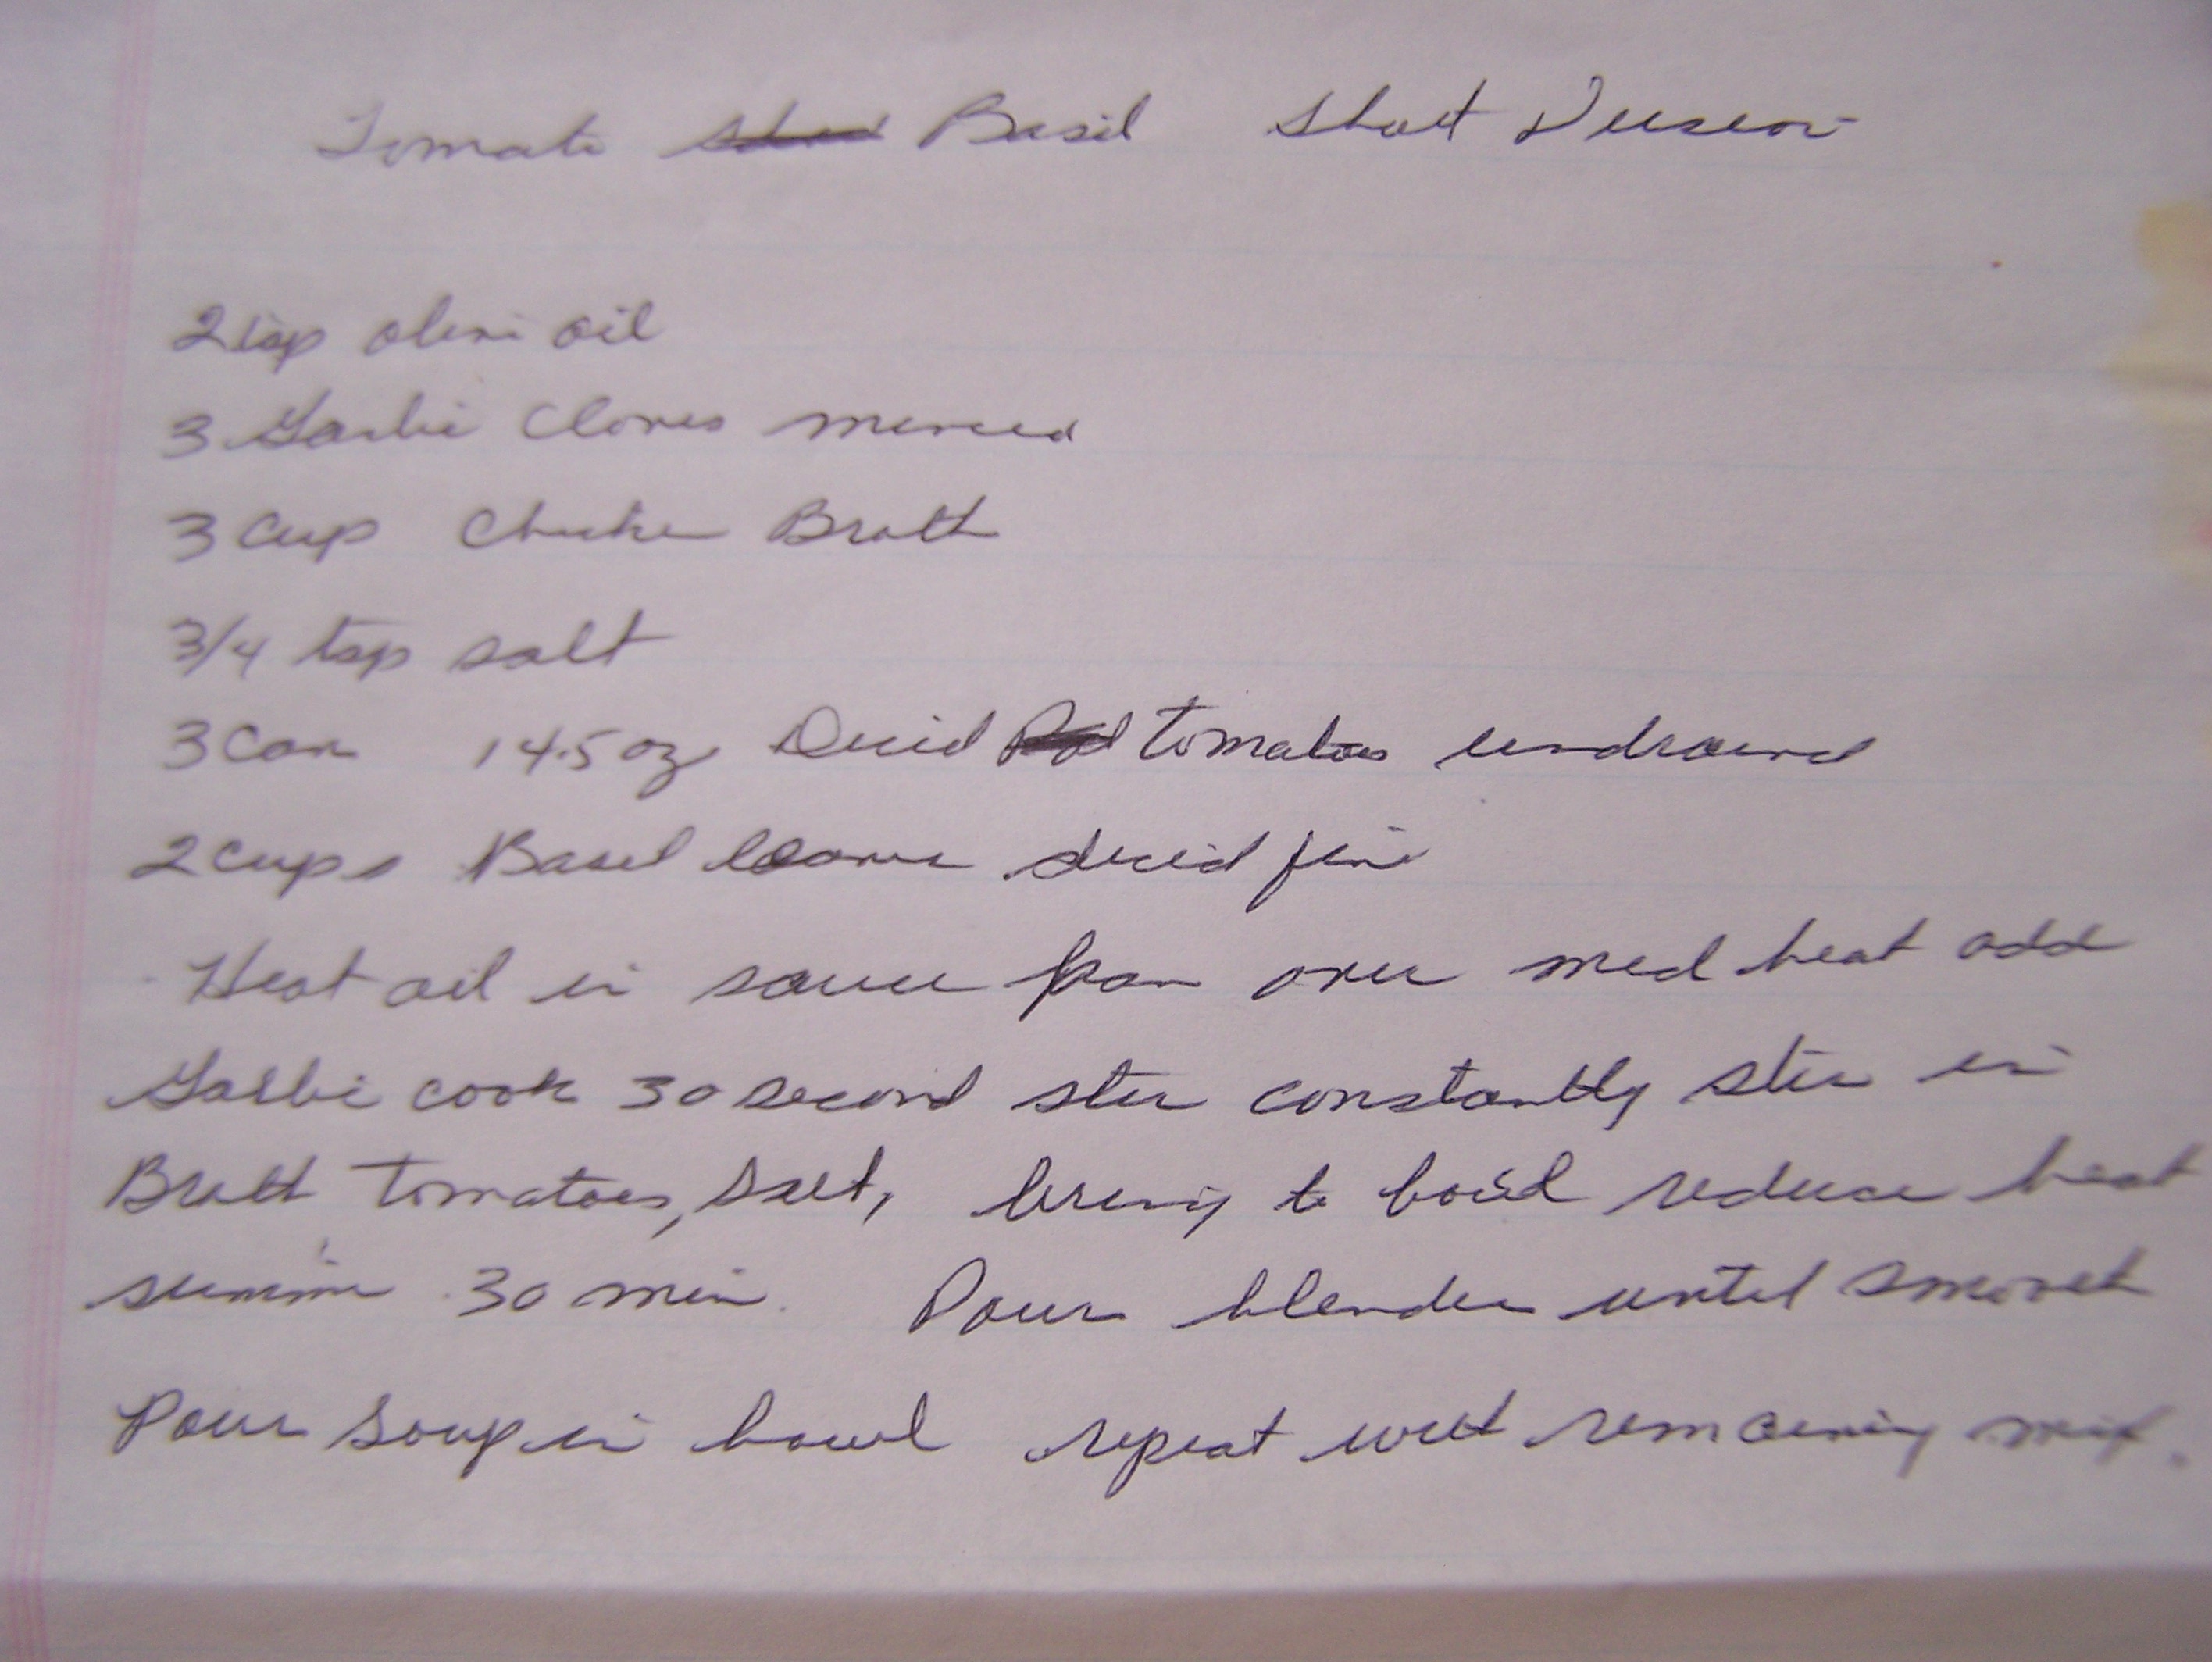 Tomato Basil Short Version
2 tsp olive oil
3 Garlic Cloves minced
3 Cup Chicken Broth
3/4 tsp salt
3 Can 14.5 oz Diced tomatoes undrained
2 cups Basil leaves sliced fine
Heat oil in sauce pan over med heat add
Garlic cook 30 second stir constantly stir in
Broth Tomatoes, Salt, bring to boil reduce heat
simmer 30 min. Pour blender until smooth
Pour Soup in bowl repeat with remaining mix.